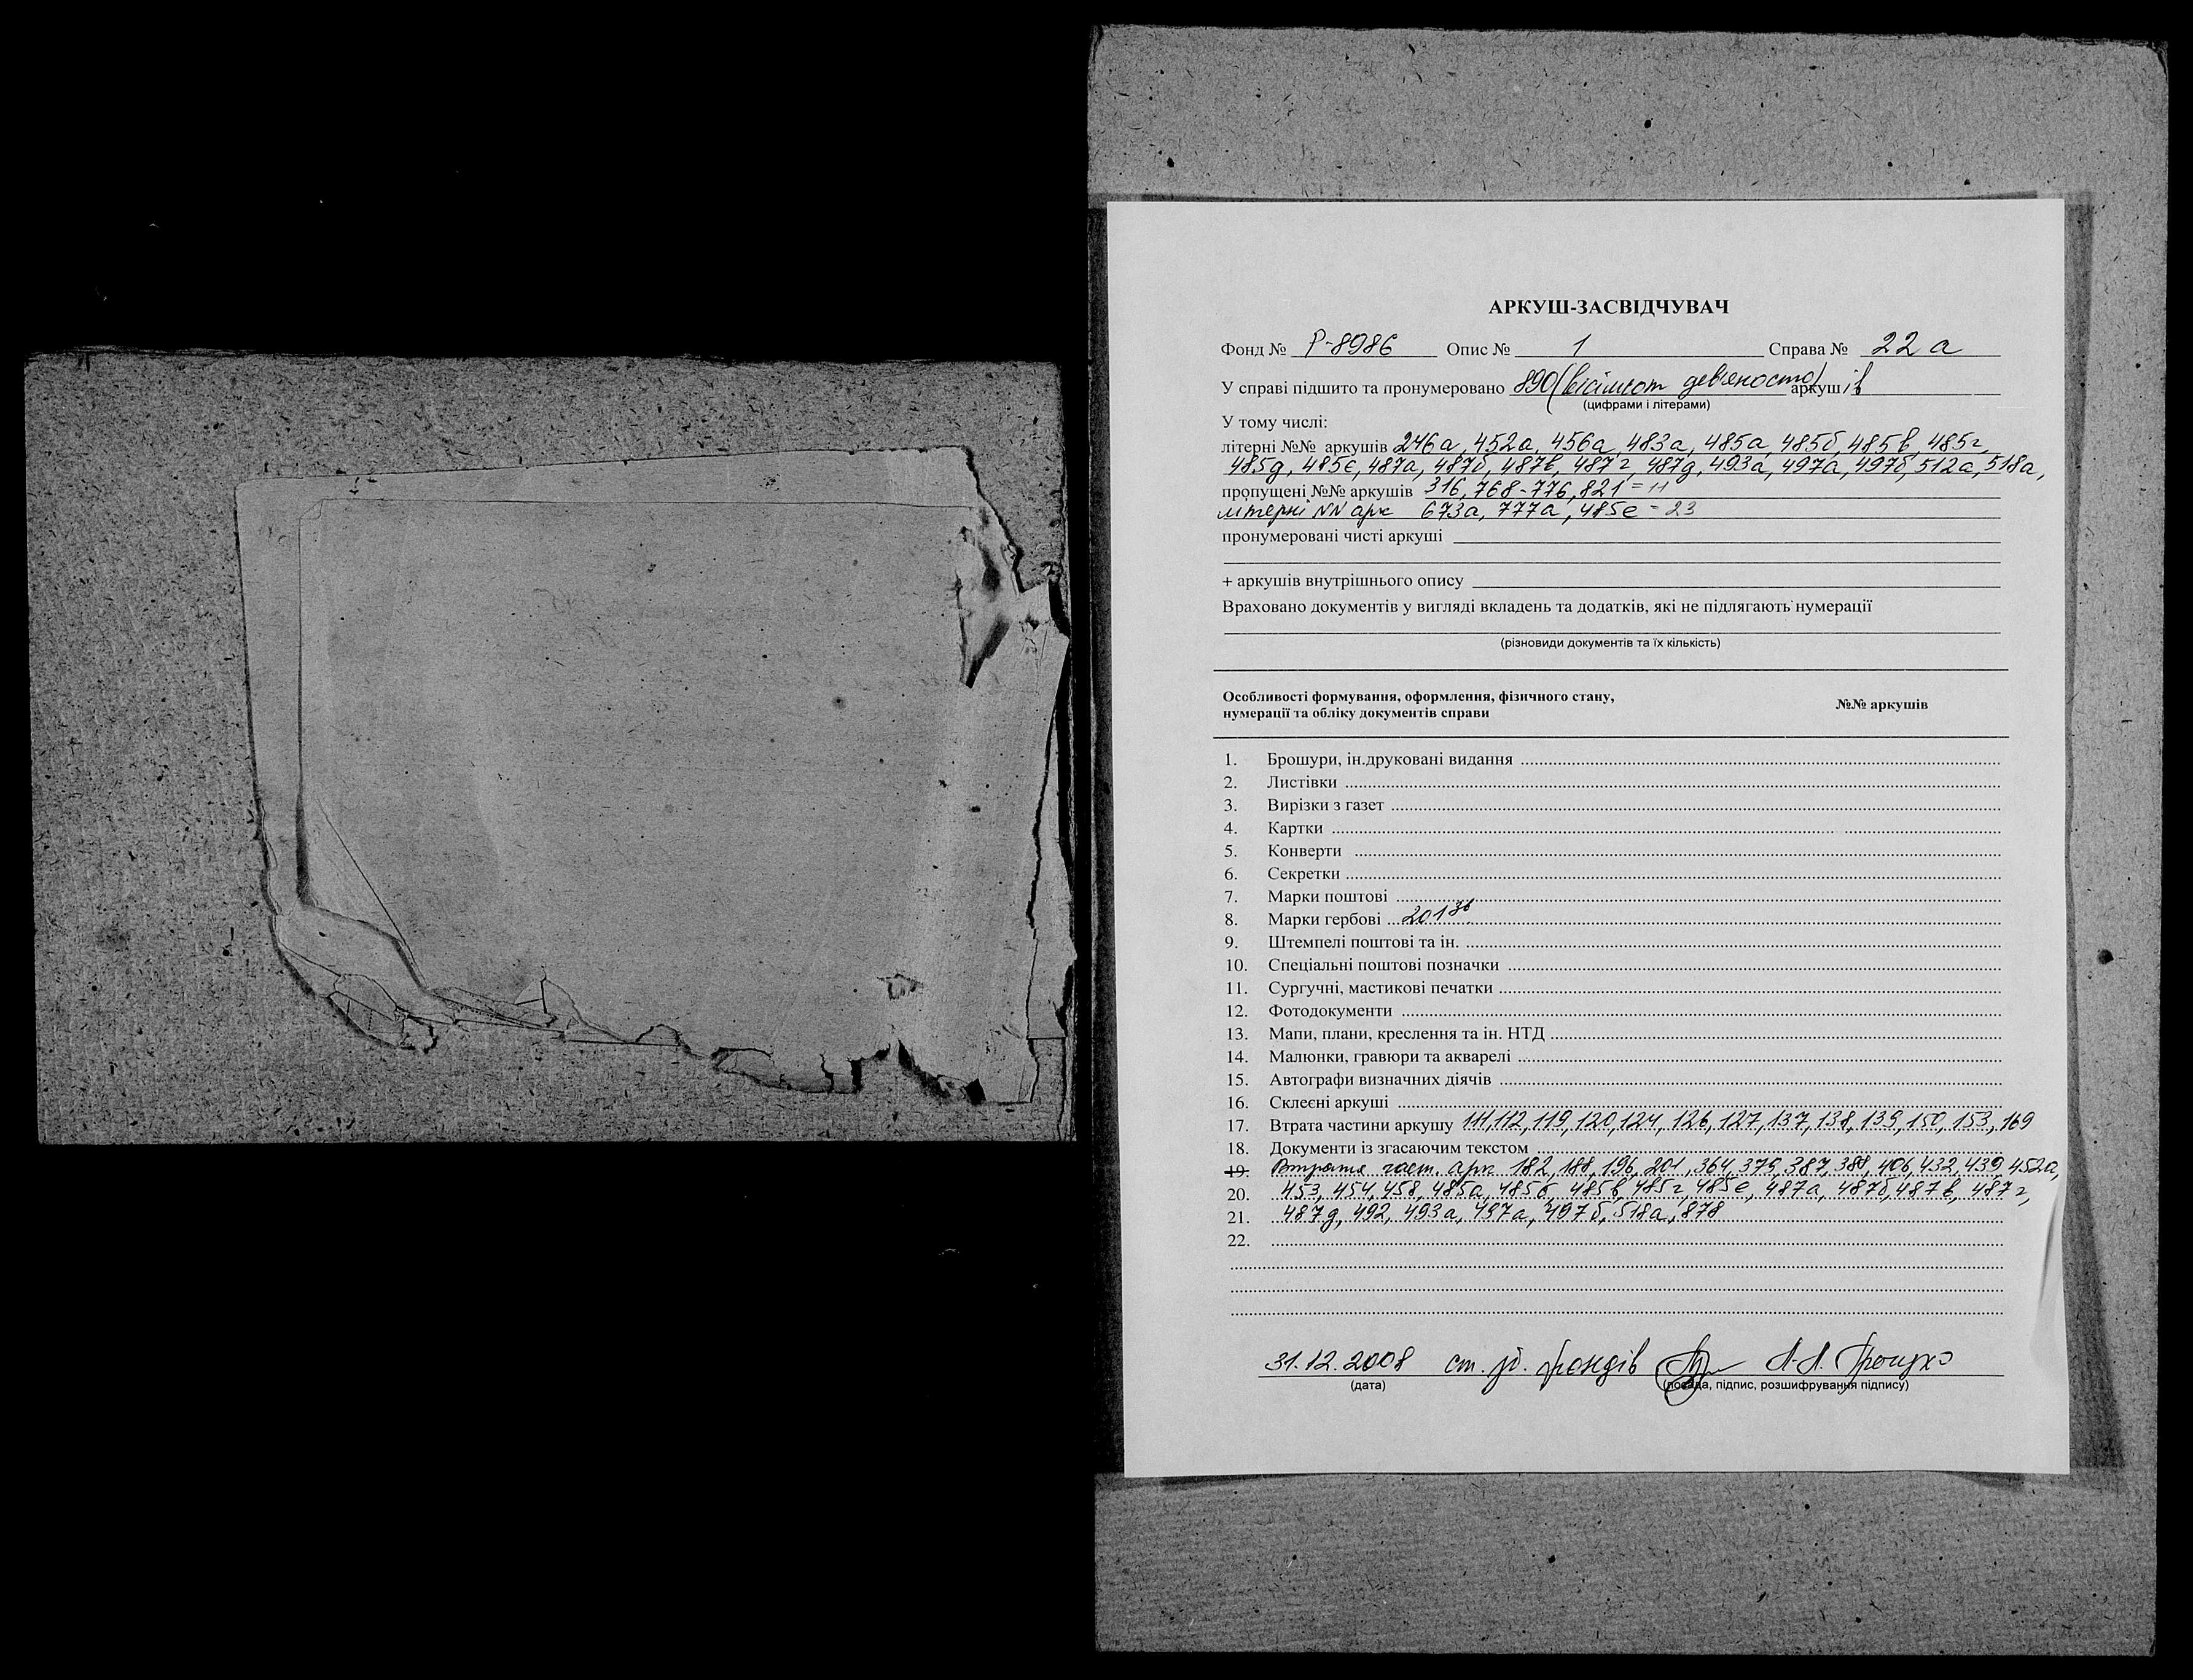 АРКУШ-ЗАСВІДЧУВАЧ
Фонд № Р-8986 Опис № 1 Справа № 22 а
У справі підшито та пронумеровано 890 (вісімсот дев'яносто) аркушів
(цифрами і літерами)
У тому числі:
літерні №№ аркушів 246а, 452а, 456а, 483а, 485а, 485б, 485в, 485г,
485д, 485є, 487а, 487б, 487в, 487г, 487д, 493а, 497а, 497б, 512а, 518а,
пропущені №№ аркушів 316, 768-776, 821 = 11
літерні NN арк 673а, 777а, 485е = 23
пронумеровані чисті аркуші
+ аркушів внутрішнього опису
Враховано документів у вигляді вкладень та додатків, які не підлягають нумерації
(різновиди документів та їх кількість)
Особливості формування, оформлення, фізичного стану,
нумерації та обліку документів справи №№ аркушів
1. Брошури, ін.друковані видання
2. Листівки
3. Вирізки з газет
4. Картки
5. Конверти
6. Секретки
7. Марки поштові
8. Марки гербові 201зв
9. Штемпелі поштові та ін.
10. Спеціальні поштові позначки
11. Сургучні, мастикові печатки
12. Фотодокументи
13. Мапи, плани, креслення та ін. НТД
14. Малюнки, гравюри та акварелі
15. Автографи визначних діячів
16. Склеєні аркуші
17. Втрата частини аркушу 111, 112, 119, 120, 124, 126, 127, 137, 138, 139, 150, 153, 169
18. Документи із згасаючим текстом
19. Втрата част. арк 182, 188, 196, 201, 364, 379, 387, 388, 406, 432, 439, 452а,
20. 453, 454, 458, 485а, 485б, 485в, 485г, 485є, 487а, 487б, 487в, 487г,
21. 487д, 492, 493а, 497а, 497б, 518а, 878
22.
31.12.2008 ст. фондів
(дата) (посада, підпис, розшифрування підпису)